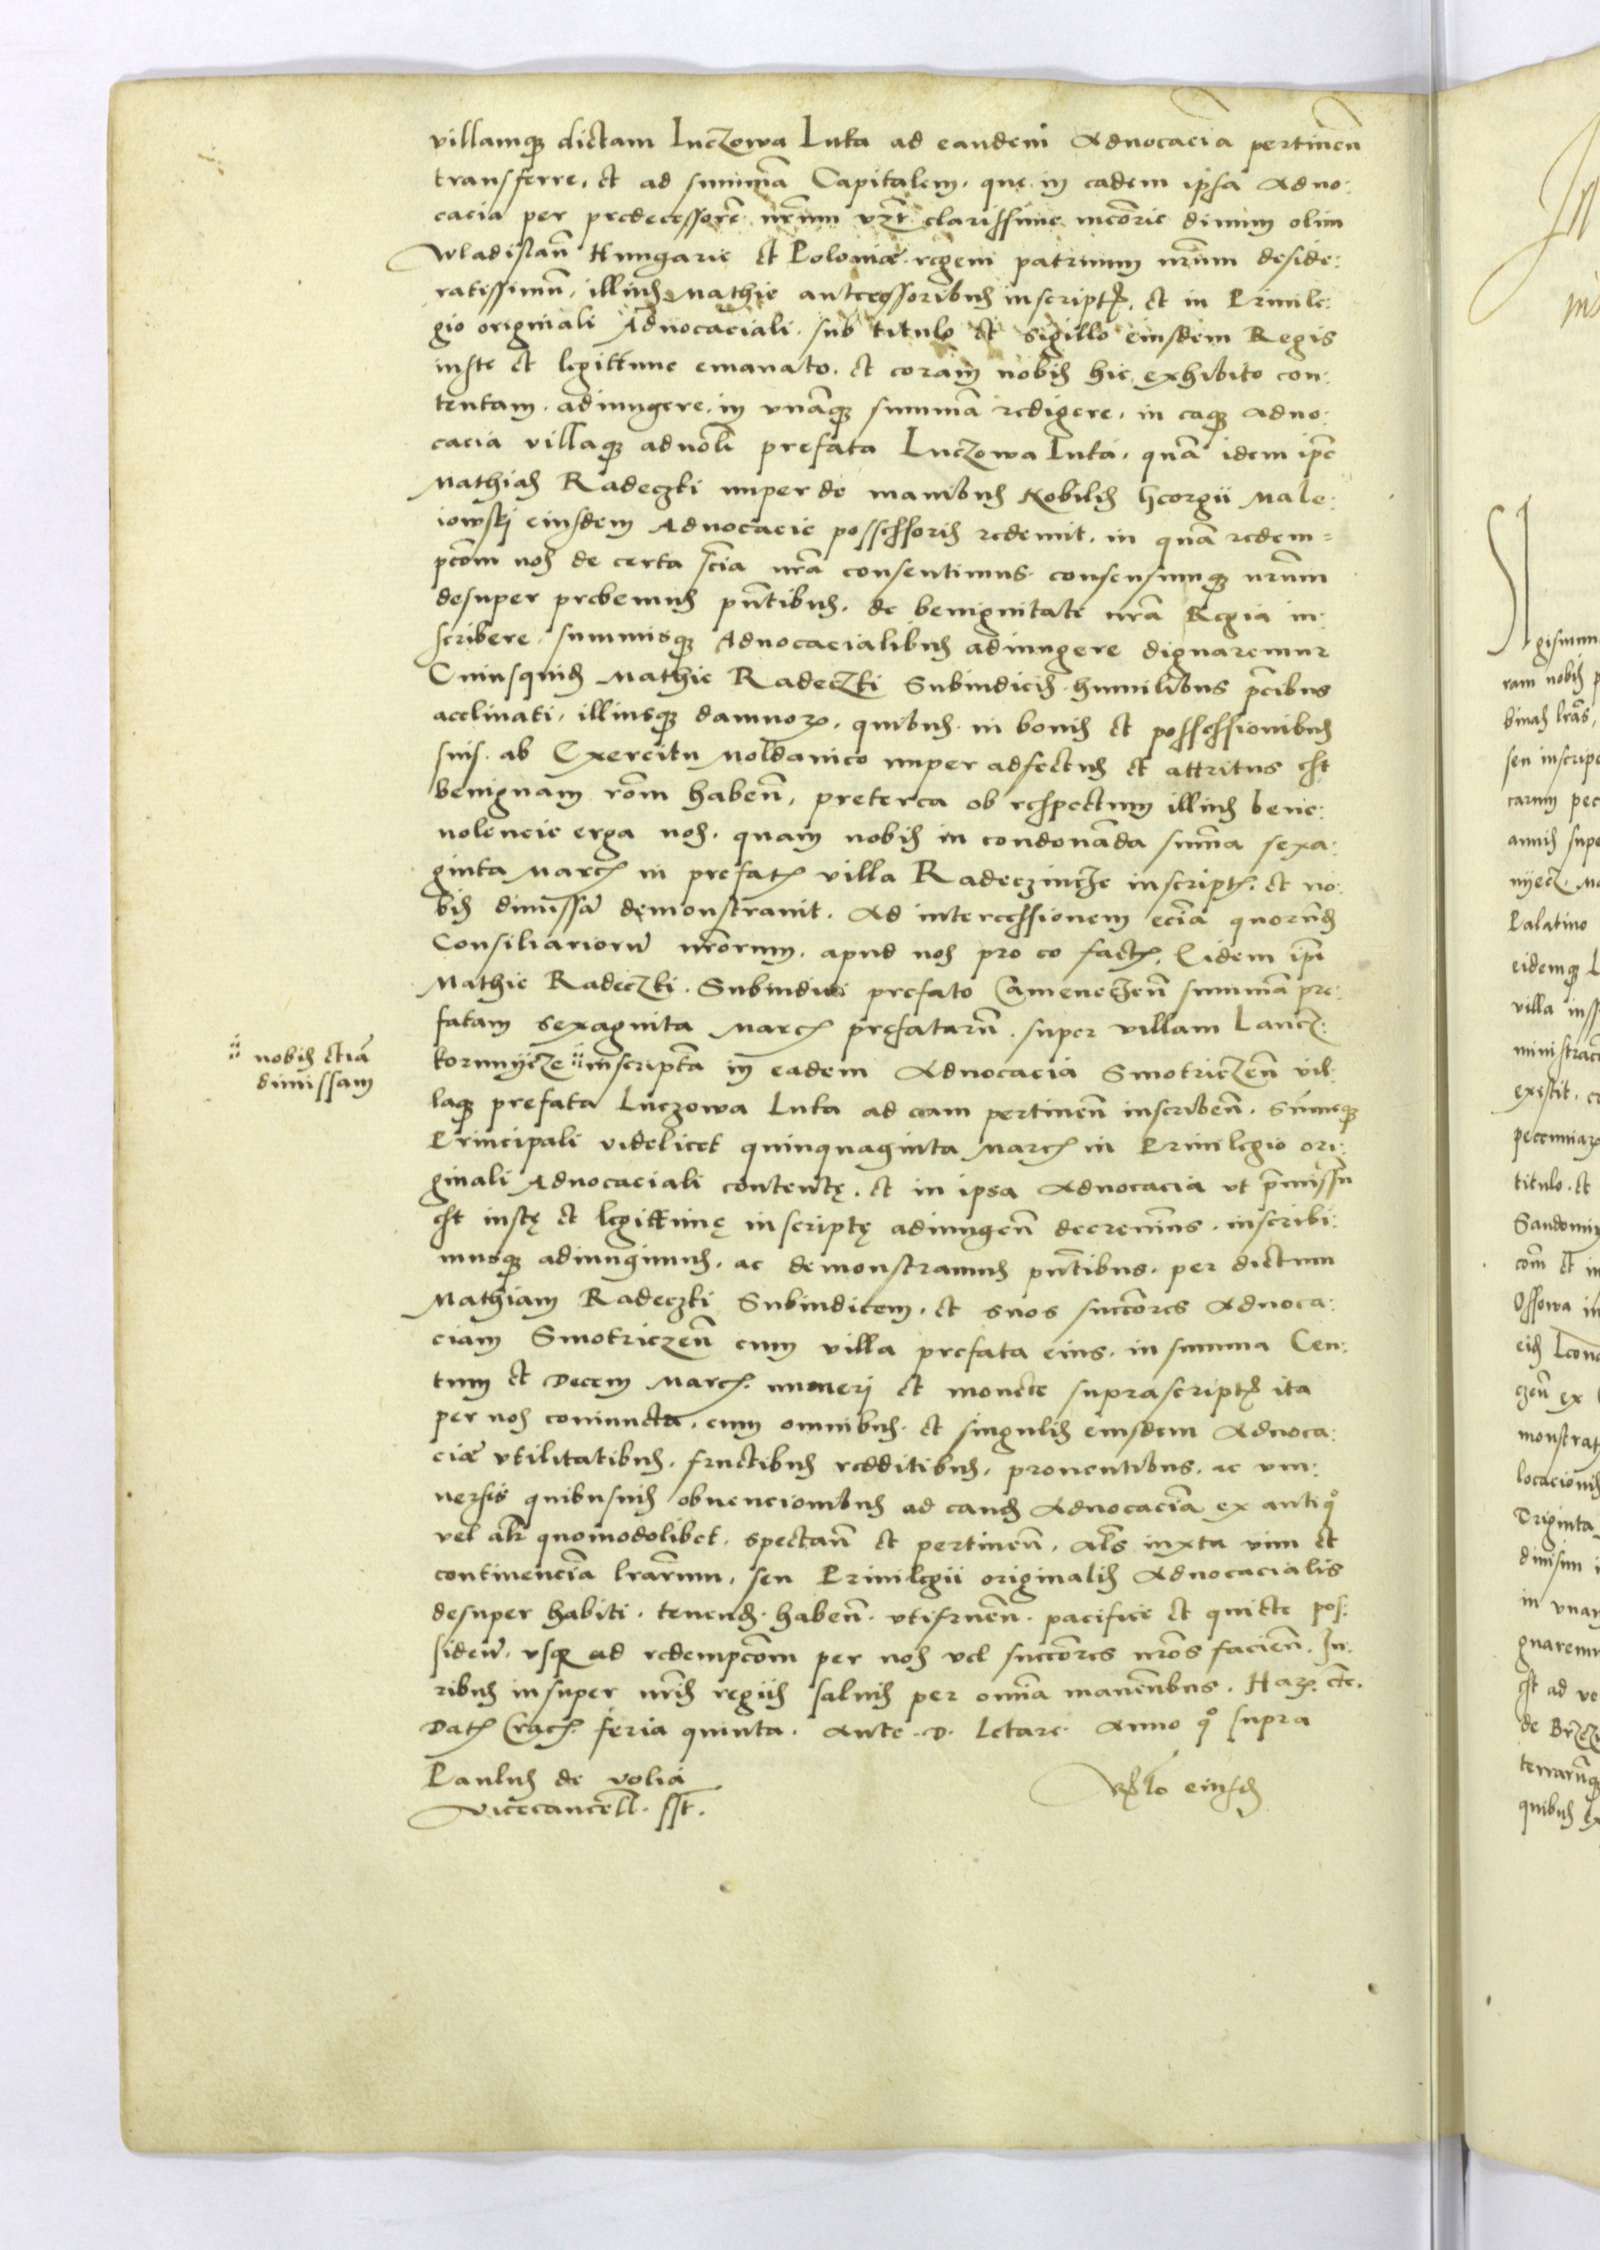 villamqȝ dictam Luczowa Luka ad eandem Aduocaciā pertineñ
transferre, et ad summā Capitalem, que in eadem ipsa aduo:
cacia per predecessorē nr̄um vȝt clarissime mēorie diuum olim
Wladislaū Hungarie et Polonie regem patruum nr̄um deside:
ratissimū, illius Mathie antecessoribus inscript, et in Priuile:
gio originali Aduocaciali sub titulo et sigillo eiusdem Regis
iuste et legittime emanato, et coram nobis hic exhibito con:
tentam, adiungere, in vnāqȝ summā redigere, in eaqȝ aduo:
cacia villaqȝ prefata Luczowa Luka, quā idem ipē
Mathias Radeczki nuper de manibus Nobilis Georgii Male:
iowskj eiusdem Aduocacie possessoris redemit, in quā redem=
pcōm nos de certa scīa nrā consentimus consensumqȝ nr̄um
desuper prebemus pn̄tibus, de benignitate nrā Regia in:
scribere, summisqȝ Aduocacialibus adiungere dignaremur
Cuiusquidē Mathie Radeczki Subiudicis humilibus p̄cibus
acclinati, illiusqȝ damnoꝝ, quibus in bonis et possessionibus
suis ab Exercitu Moldauico nuper adfectus et attritus est
benignam rōm habeñ, preterea ob respectum illius bene:
uolencie erga nos, quam nobis in condonāda summa sexa:
ginta Marc in prefat villa Radeczincze inscript et no:
bis dimissā demonstrauit. Ad intercessionem eciā quorūd
Consiliariorū nrōrum, apud nos pro eo fact, Eidem ipī
Mathie Radeczki Subiudici prefato Cameneczeñ summā pre:
fatam sexaginta Marc prefatarū super villam Lancz:
korunycze ⁝⁝ inscriptā in eadem Aduocacia Smotriczeñ vil:
laqȝ prefata Luczowa Luka ad eam pertineñ inscribeñ, Sūmeqȝ
Principali videlicet quinquaginta Marc in Priuilegio ori:
ginali Aduocaciali contentę, et in ipsa Aduocacia vt p̄missū
est iustę et legittimę inscriptę adiungeñ decreuimus, inscribi:
musqȝ adiungimus, ac demonstramus pn̄tibus, per dictum
Mathiam Radeczki Subiudicem, et suos succōres Aduoca:
ciam Smotriczeñ cum villa prefata eius, in summa Cen:
tum et Decem Marc numeri et monete suprascript ita
per nos coniuncta, cum omnibus et singulis eiusdem Aduoca:
cie vtilitatibus, fructibus redditibus, prouentibus, ac vni:
uersis quibusuis obuencionibus ad eand Aduocaciā ex antiqͦ
vel alr quomodolibet spectañ et pertineñ, Als iuxta vim et
continenciā lrārum, seu Priuilegii originalis Aduocacialis
desuper habiti, tenend habeñ vtifrueñ pacifice et quiete pos:
sideñ, vsqȝ ad redempcōm per nos vel succōres nrōs facieñ. Iu:
ribus insuper nrīs regiis saluis per omnia manentibus. Haꝝ etc.
Dat Crac feria quinta Ante D. Letare Anno qͦ supra
⁝⁝ nobis etiā
dimissam
Paulus de volia
Vicecancell sst.
Rlo eiusd